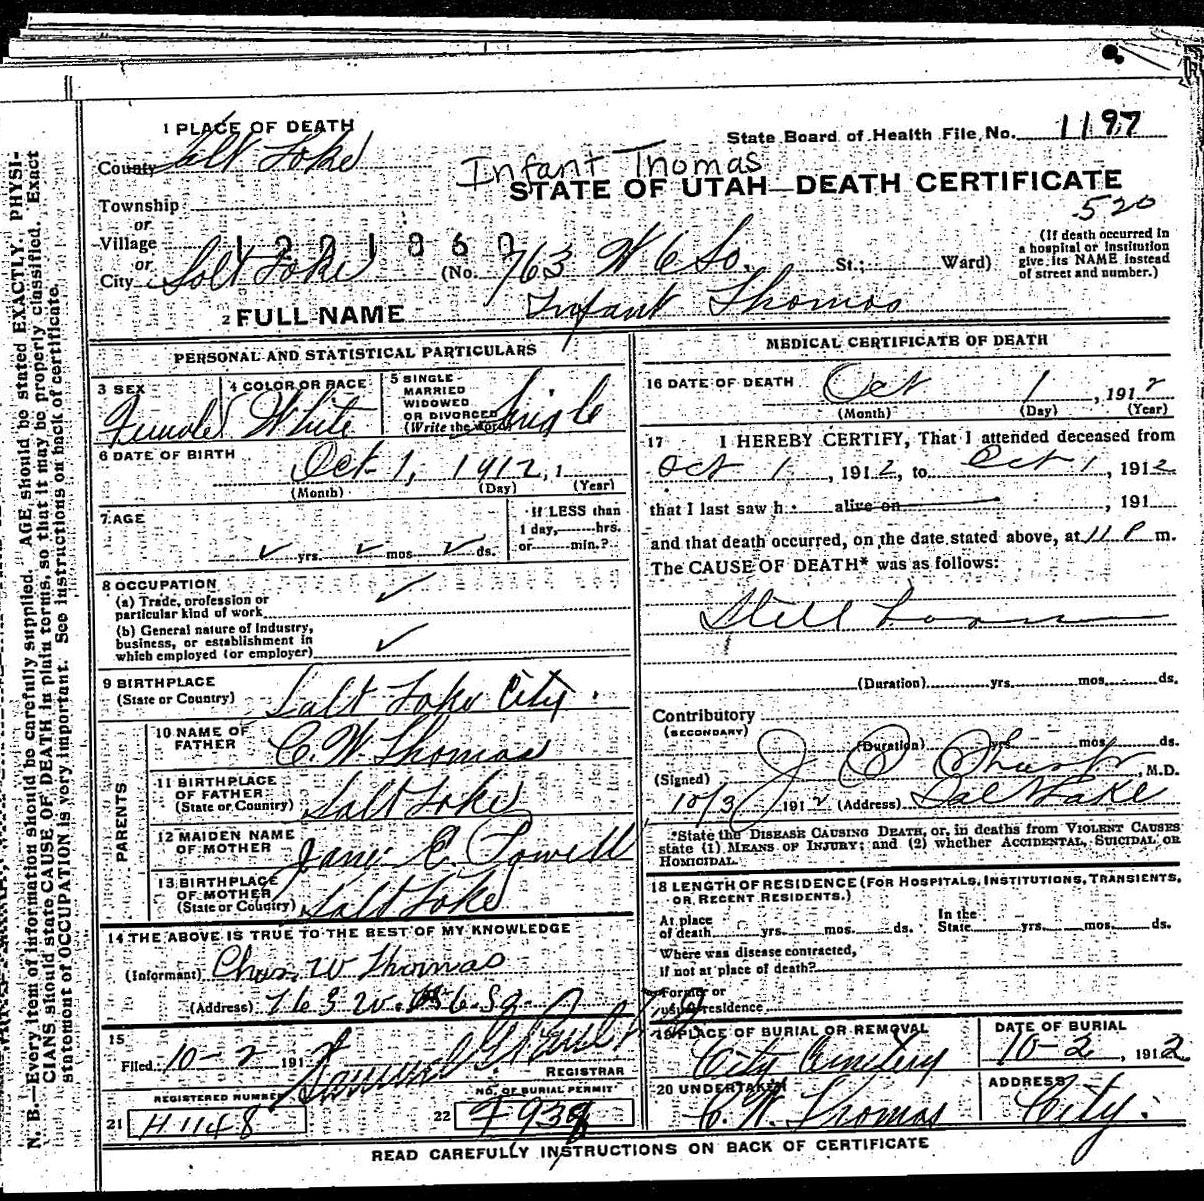 1 PLACE OF DEATH
State Board of Health File No. 1197
County Salt Lake
Infant Thomas
STATE OF UTAH—DEATH CERTIFICATE
Township
520
or
Village
1221360
or
City Salt Lake (No. 763 W 6 So. St.; Ward)
(If death occurred in
a hospital or institution
give its NAME instead
of street and number.)
2 FULL NAME Infant Thomas
PERSONAL AND STATISTICAL PARTICULARS
3 SEX
Female
4 COLOR OR RACE
White
5 SINGLE
MARRIED
WIDOWED
OR DIVORCED
(Write the word) Single
6 DATE OF BIRTH
Oct 1, 1912, 1
(Month) (Day) (Year)
7 AGE
✓ yrs. ✓ mos ✓ ds.
If LESS than
1 day, hrs.
or min.?
8 OCCUPATION
(a) Trade, profession or
particular kind of work ✓
(b) General nature of Industry,
business, or establishment in
which employed (or employer) ✓
9 BIRTHPLACE
(State or Country) Salt Lake City.
PARENTS
10 NAME OF
FATHER C. W. Thomas
11 BIRTHPLACE
OF FATHER
(State or Country) Salt Lake
12 MAIDEN NAME
OF MOTHER Jane E. Powell
13 BIRTHPLACE
OF MOTHER
(State or Country) Salt Lake
14 THE ABOVE IS TRUE TO THE BEST OF MY KNOWLEDGE
(Informant) Chas. W Thomas
(Address) 763 W. 6 So.
15
Filed 10-2 1912
REGISTRAR
REGISTERED NUMBER
21 H1148
NO. OF BURIAL PERMIT
22 4938
MEDICAL CERTIFICATE OF DEATH
16 DATE OF DEATH Oct 1, 1912
(Month) (Day) (Year)
17 I HEREBY CERTIFY, That I attended deceased from
Oct 1, 1912, to Oct 1, 1912
that I last saw h alive on , 191
and that death occurred, on the date stated above, at 11 P m.
The CAUSE OF DEATH* was as follows:
Still born
(Duration) yrs. mos. ds.
Contributory
(SECONDARY)
(Duration) yrs. mos. ds.
(Signed) J. C. , M.D.
10/3 1912 (Address) Salt Lake
*State the DISEASE CAUSING DEATH, or, in deaths from VIOLENT CAUSES
state (1) MEANS OF INJURY; and (2) whether ACCIDENTAL, SUICIDAL OR
HOMICIDAL.
18 LENGTH OF RESIDENCE (FOR HOSPITALS, INSTITUTIONS, TRANSIENTS,
OR RECENT RESIDENTS.)
At place
of death yrs. mos. ds.
In the
State yrs. mos. ds.
Where was disease contracted,
If not at place of death?
Former or
usual residence
19 PLACE OF BURIAL OR REMOVAL
City Cemetery
DATE OF BURIAL
10-2, 1912
20 UNDERTAKER
C. W. Thomas
ADDRESS
City.
READ CAREFULLY INSTRUCTIONS ON BACK OF CERTIFICATE
N. B.—Every item of information should be carefully supplied. AGE should be stated EXACTLY. PHYSI-
CIANS should state CAUSE OF DEATH in plain terms, so that it may be properly classified. Exact
statement of OCCUPATION is very important. See instructions on back of certificate.